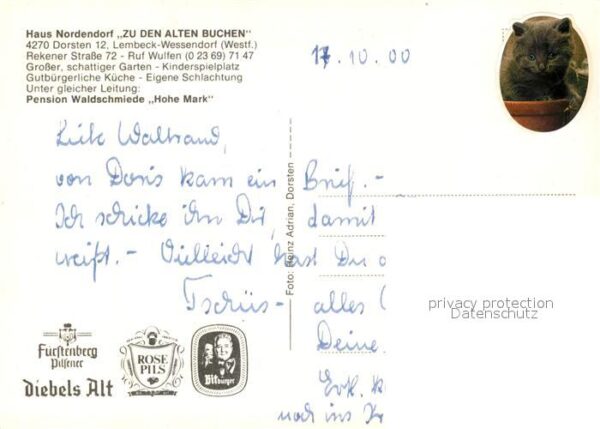 Haus Nordendorf „ZU DEN ALTEN BUCHEN"
4270 Dorsten 12, Lembeck-Wessendorf (Westf.)
Rekener Straße 72 - Ruf Wulfen (0 23 69) 71 47
Großer, schattiger Garten - Kinderspielplatz
Gutbürgerliche Küche - Eigene Schlachtung
Unter gleicher Leitung:
Pension Waldschmiede „Hohe Mark"
17.10.00
Liebe Waltraud,
von Doris kam ein Brief. -
Ich schicke ihn Dir, damit
weißt. - Vielleicht hast Du
Tschüs - alles
Deine
noch ins
Foto: Heinz Adrian, Dorsten
privacy protection
Datenschutz
Fürstenberg
Pilsener
ROSE
PILS
Bitburger
Diebels Alt